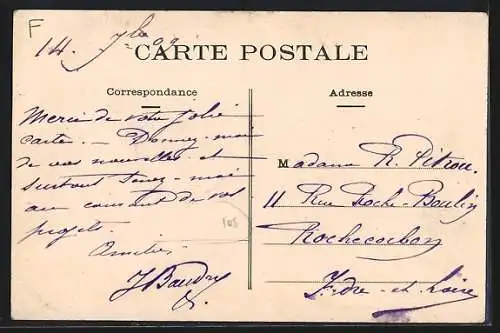 F
14. 7bre 09
CARTE POSTALE
Correspondance
Merci de votre jolie
carte. — Donnez-moi
de vos nouvelles et
surtout tenez-moi
au courant de vos
projets.
Amitiés
J Baudry
Adresse
Madame R. Pitrou
11 Rue Roche-Boulin
Rochecorbon
Indre-et-Loire